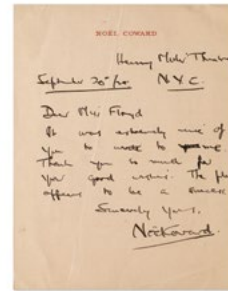 NOËL COWARD
Henry Miller Theatre
September 20th
N.Y.C.
Dear Miss Floyd
It was extremely nice of
you to write to me.
Thank you so much for
your good wishes. The play
appears to be a success
Sincerely yours,
Noël Coward.